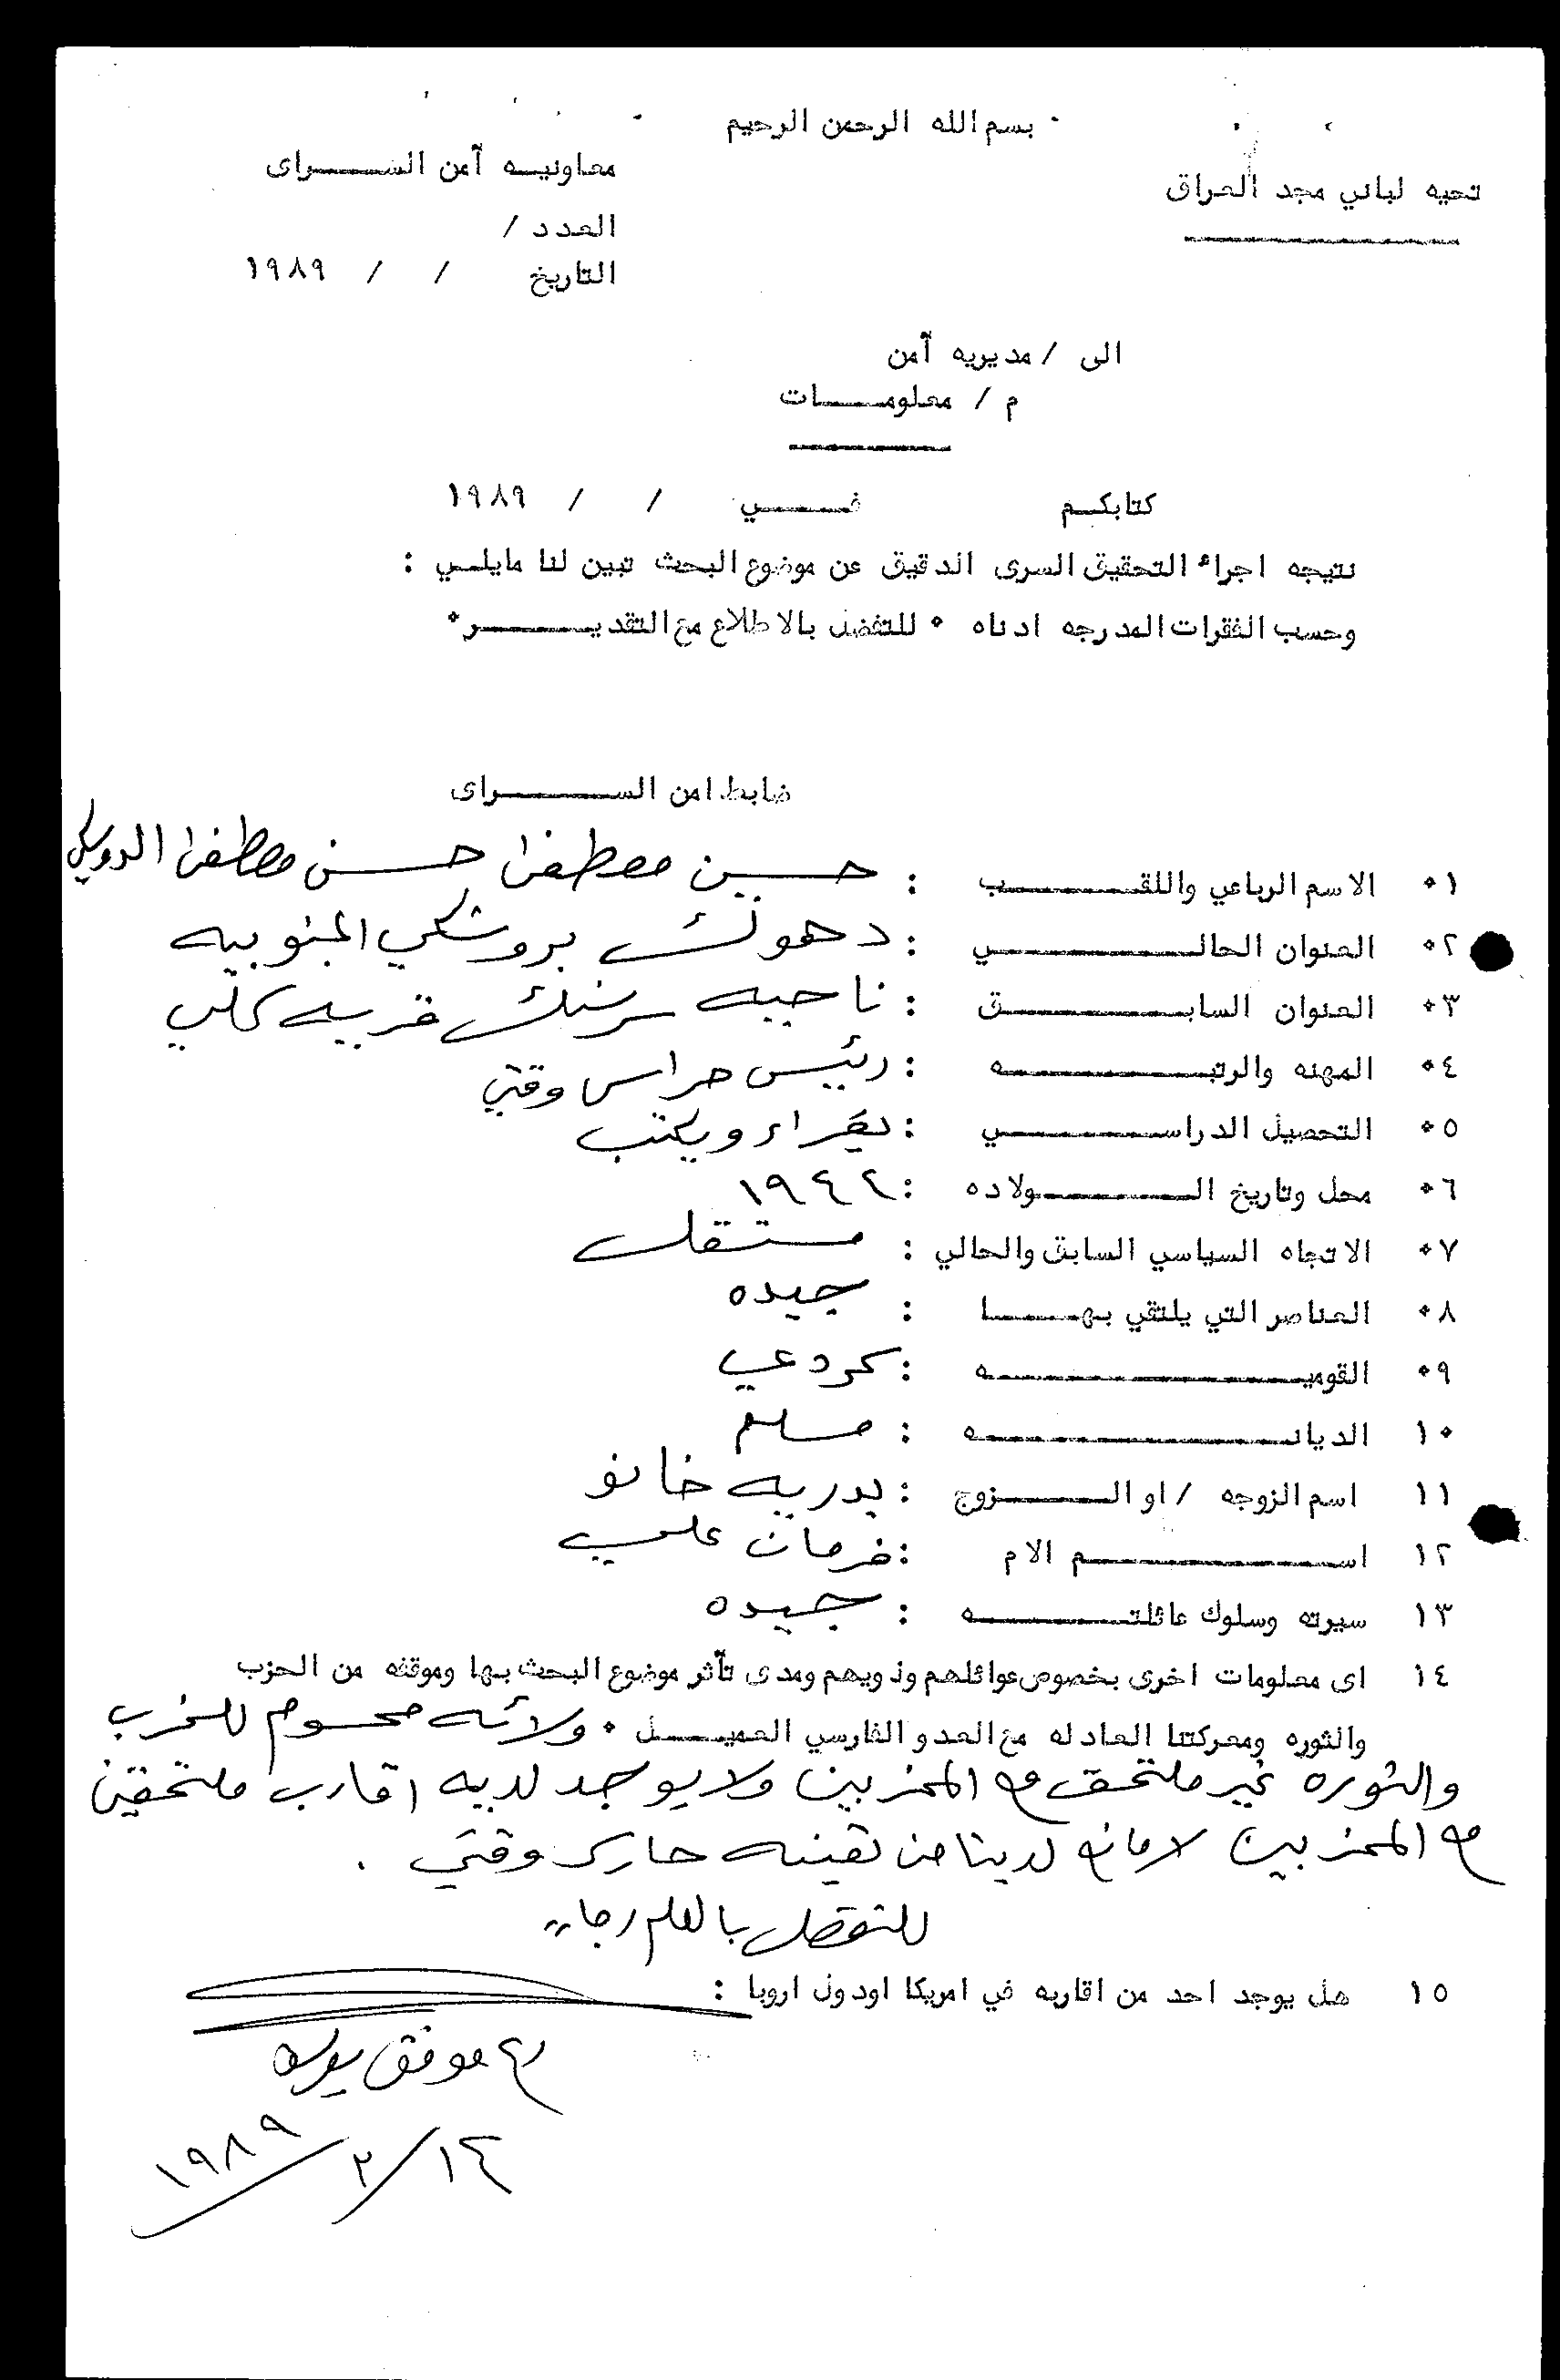 بسم الله الرحمن الرحيم
تحيه لباني مجد العراق
معاونيه آمن السراى
العدد /
التاريخ / / ١٩٨٩
الى / مديريه آمن
م / معلومات
كتابكم في / / ١٩٨٩
نتيجه اجراء التحقيق السرى الدقيق عن موضوع البحث تبين لنا مايلي :
وحسب الفقرات المدرجه ادناه ٠ للتفضل بالاطلاع مع التقدير٠
ضابط امن السراى
٠١ الاسم الرباعي واللقب : حسين مصطفى حسن مصطفى الدوسكي
٠٢ العنوان الحالي : دهوك بروشكي الجنوبيه
٠٣ العنوان السابق : ناحيه سرسنك قريه
٠٤ المهنه والرتبه : رئيس حراس وقتي
٠٥ التحصيل الدراسي : يقراء ويكتب
٠٦ محل وتاريخ الولاده : ١٩٤٢
٠٧ الاتجاه السياسي السابق والحالي : مستقل
٠٨ العناصر التي يلتقي بها : جيده
٠٩ القوميه : كردي
١٠ الديانه : مسلم
١١ اسم الزوجه / او الزوج : بدريه خانو
١٢ اسم الام : فرمان علي
١٣ سيرته وسلوك عائلته : جيده
١٤ اى معلومات اخرى بخصوص عوائلهم وذويهم ومدى تآثر موضوع البحث بها وموقفه من الحزب
والثوره ومعركتنا العادله مع العدو الفارسي العميل ٠ ولائه محسوم للحزب
والثوره غير ملتحق مع المخربين ولا يوجد لديه اقارب ملتحقين
مع المخربين لا مانع لدينا من تعينه حارس وقتي .
للتفضل بالعلم رجاءً
١٥ هل يوجد احد من اقاربه في امريكا اودول اروبا :
موفق
١٤/٢/١٩٨٩